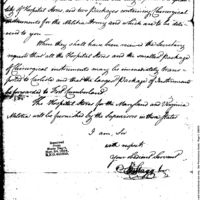 dity of Hospital Stores and two packages containing Chirurgical
Instruments for the Militia Army and which are to be deli-
-vered to you
When they shall have been received the Secretary
requests that all the Hospital Stores and the smallest Package
of Chirurgical instruments may be immediately trans-
ported to Carlisle and that the largest Package of Instruments
be forwarded to Fort Cumberland
The Hospital Stores for the Maryland and Virginia
Militia will be furnished by the Superiors in those States
I am, Sir
with respect
Your Obedient Servant